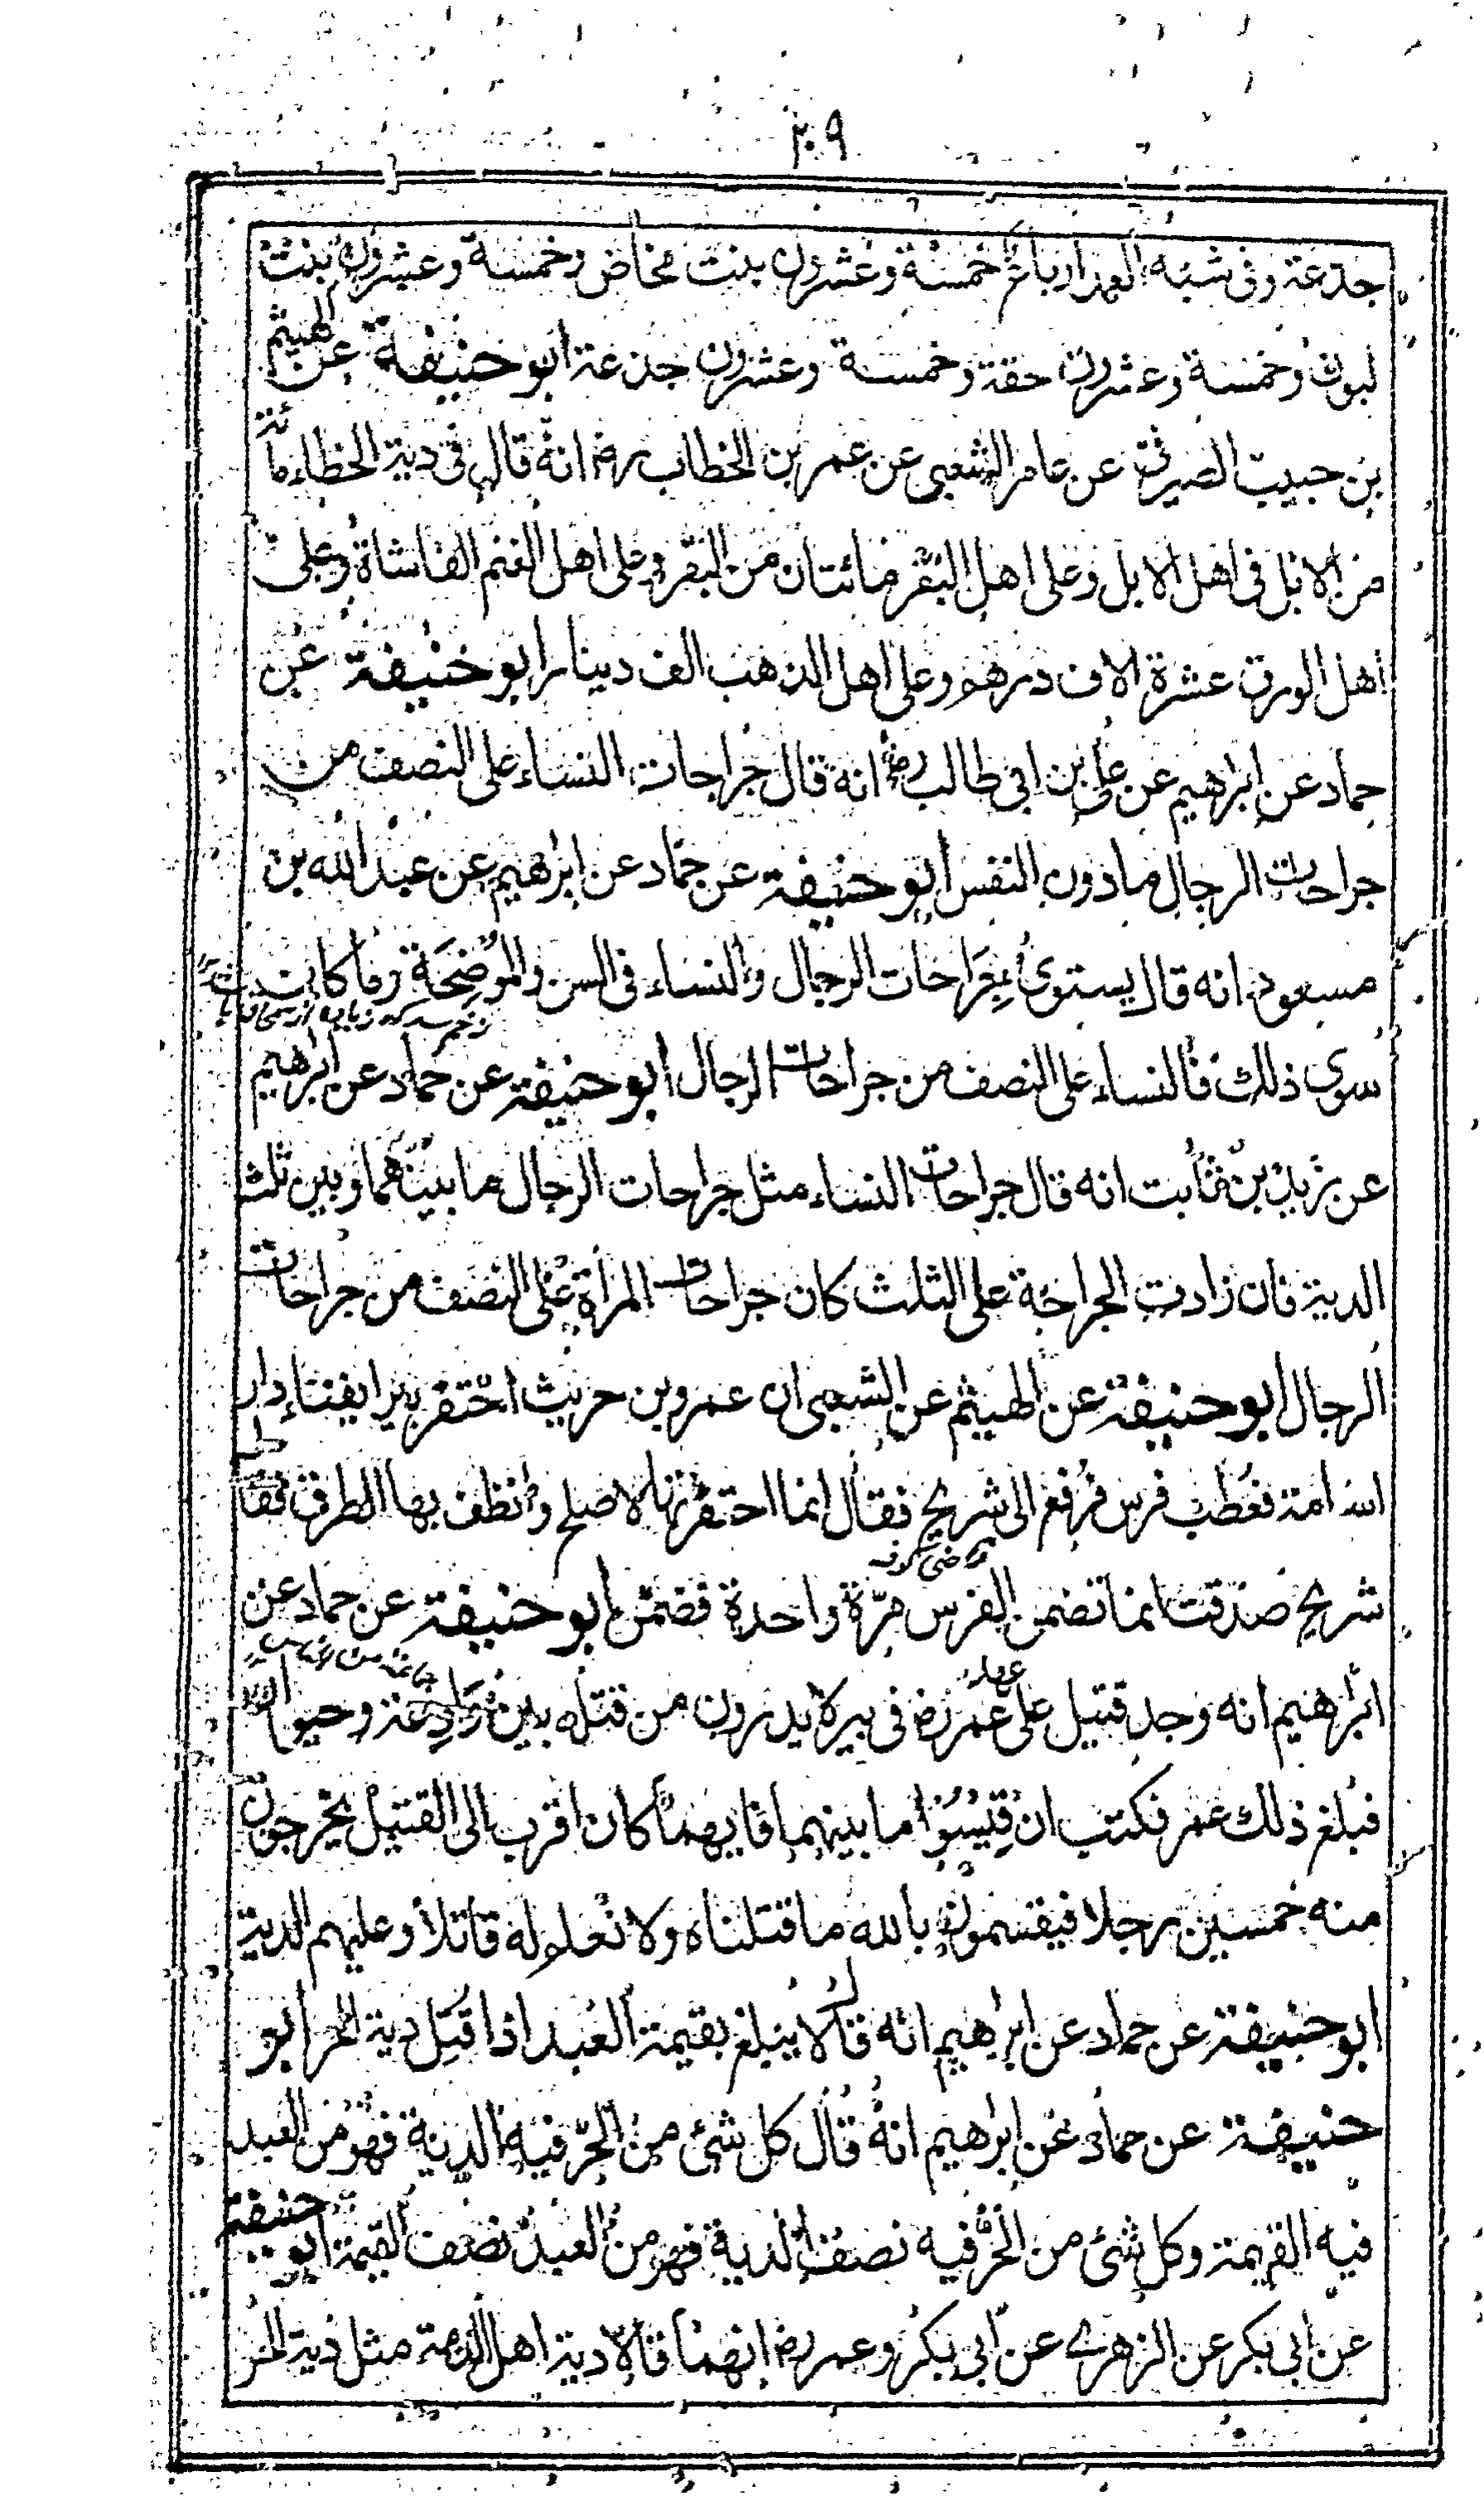 ٢٠٩
جذعة وفى شبه العمد ارباعا خمسة وعشرون بنت مخاض وخمسة وعشرون بنت
لبون وخمسة وعشرون حقة وخمسة وعشرون جذعة ابو حنيفة عن الهيثم
بن حبيب الصيرفى عن عامر الشعبى عن عمر بن الخطاب رضـ انه قال فى دية الخطاء مائة
من الابل فى اهل الابل وعلى اهل البقر مائتان من البقر وعلى اهل الغنم الفا شاة وعلى
اهل الورق عشرة الاف درهم وعلى اهل الذهب الف دينار ابو حنيفة عن
حماد عن ابرهيم عن على بن ابى طالب رضـ انه قال جراحات النساء على النصف من
جراحات الرجال مادون النفس ابو حنيفة عن حماد عن ابرهيم عن عبد الله بن
مسعود انه قال يستوى جراحات الرجال والنساء فى السن والموضحة وما كانت
سوى ذلك فالنساء على النصف من جراحات الرجال ابو حنيفة عن حماد عن ابرهيم
عن زيد بن ثابت انه قال جراحات النساء مثل جراحات الرجال ما بينهما وبين ثلث
الدية فان زادت الجراحة على الثلث كان جراحات المرأة على النصف من جراحات
الرجال ابو حنيفة عن الهيثم عن الشعبى ان عمرو بن حريث احتفر بيرا بفناء دار
اسامة فعطب فرس فرفع الى شريح فقال انما احتفرتها لاصلح وانظف بها الطرق فقال
قاضى كوفه
شريح صدقت انما تضمن الفرس مرّة واحدة فضمن ابو حنيفة عن حماد عن
ابرهيم انه وجد قتيل على عهد عمر رضـ فى بير لا يدرون من قتله بين وادعة وحيوان
فبلغ ذلك عمر فكتب ان قيسوا ما بينهما فايهما كان اقرب الى القتيل يخرجون
منه خمسين رجلا فيقسمون بالله ما قتلناه ولا نعلم له قاتلا وعليهم الدية
ابو حنيفة عن حماد عن ابرهيم انه قال لا يبلغ بقيمة العبد اذا قتل دية الحر ابو
حنيفة عن حماد عن ابرهيم انه قال كل شئ من الحرّ فيه الدية فهو من العبد
فيه القيمة وكل شئ من الحرّ فيه نصف الدية فهو من العبد نصف القيمة ابو حنيفة
عن ابى بكر عن الزهرى عن ابى بكر وعمر رضـ انهما قالا دية اهل الذمة مثل دية الحر